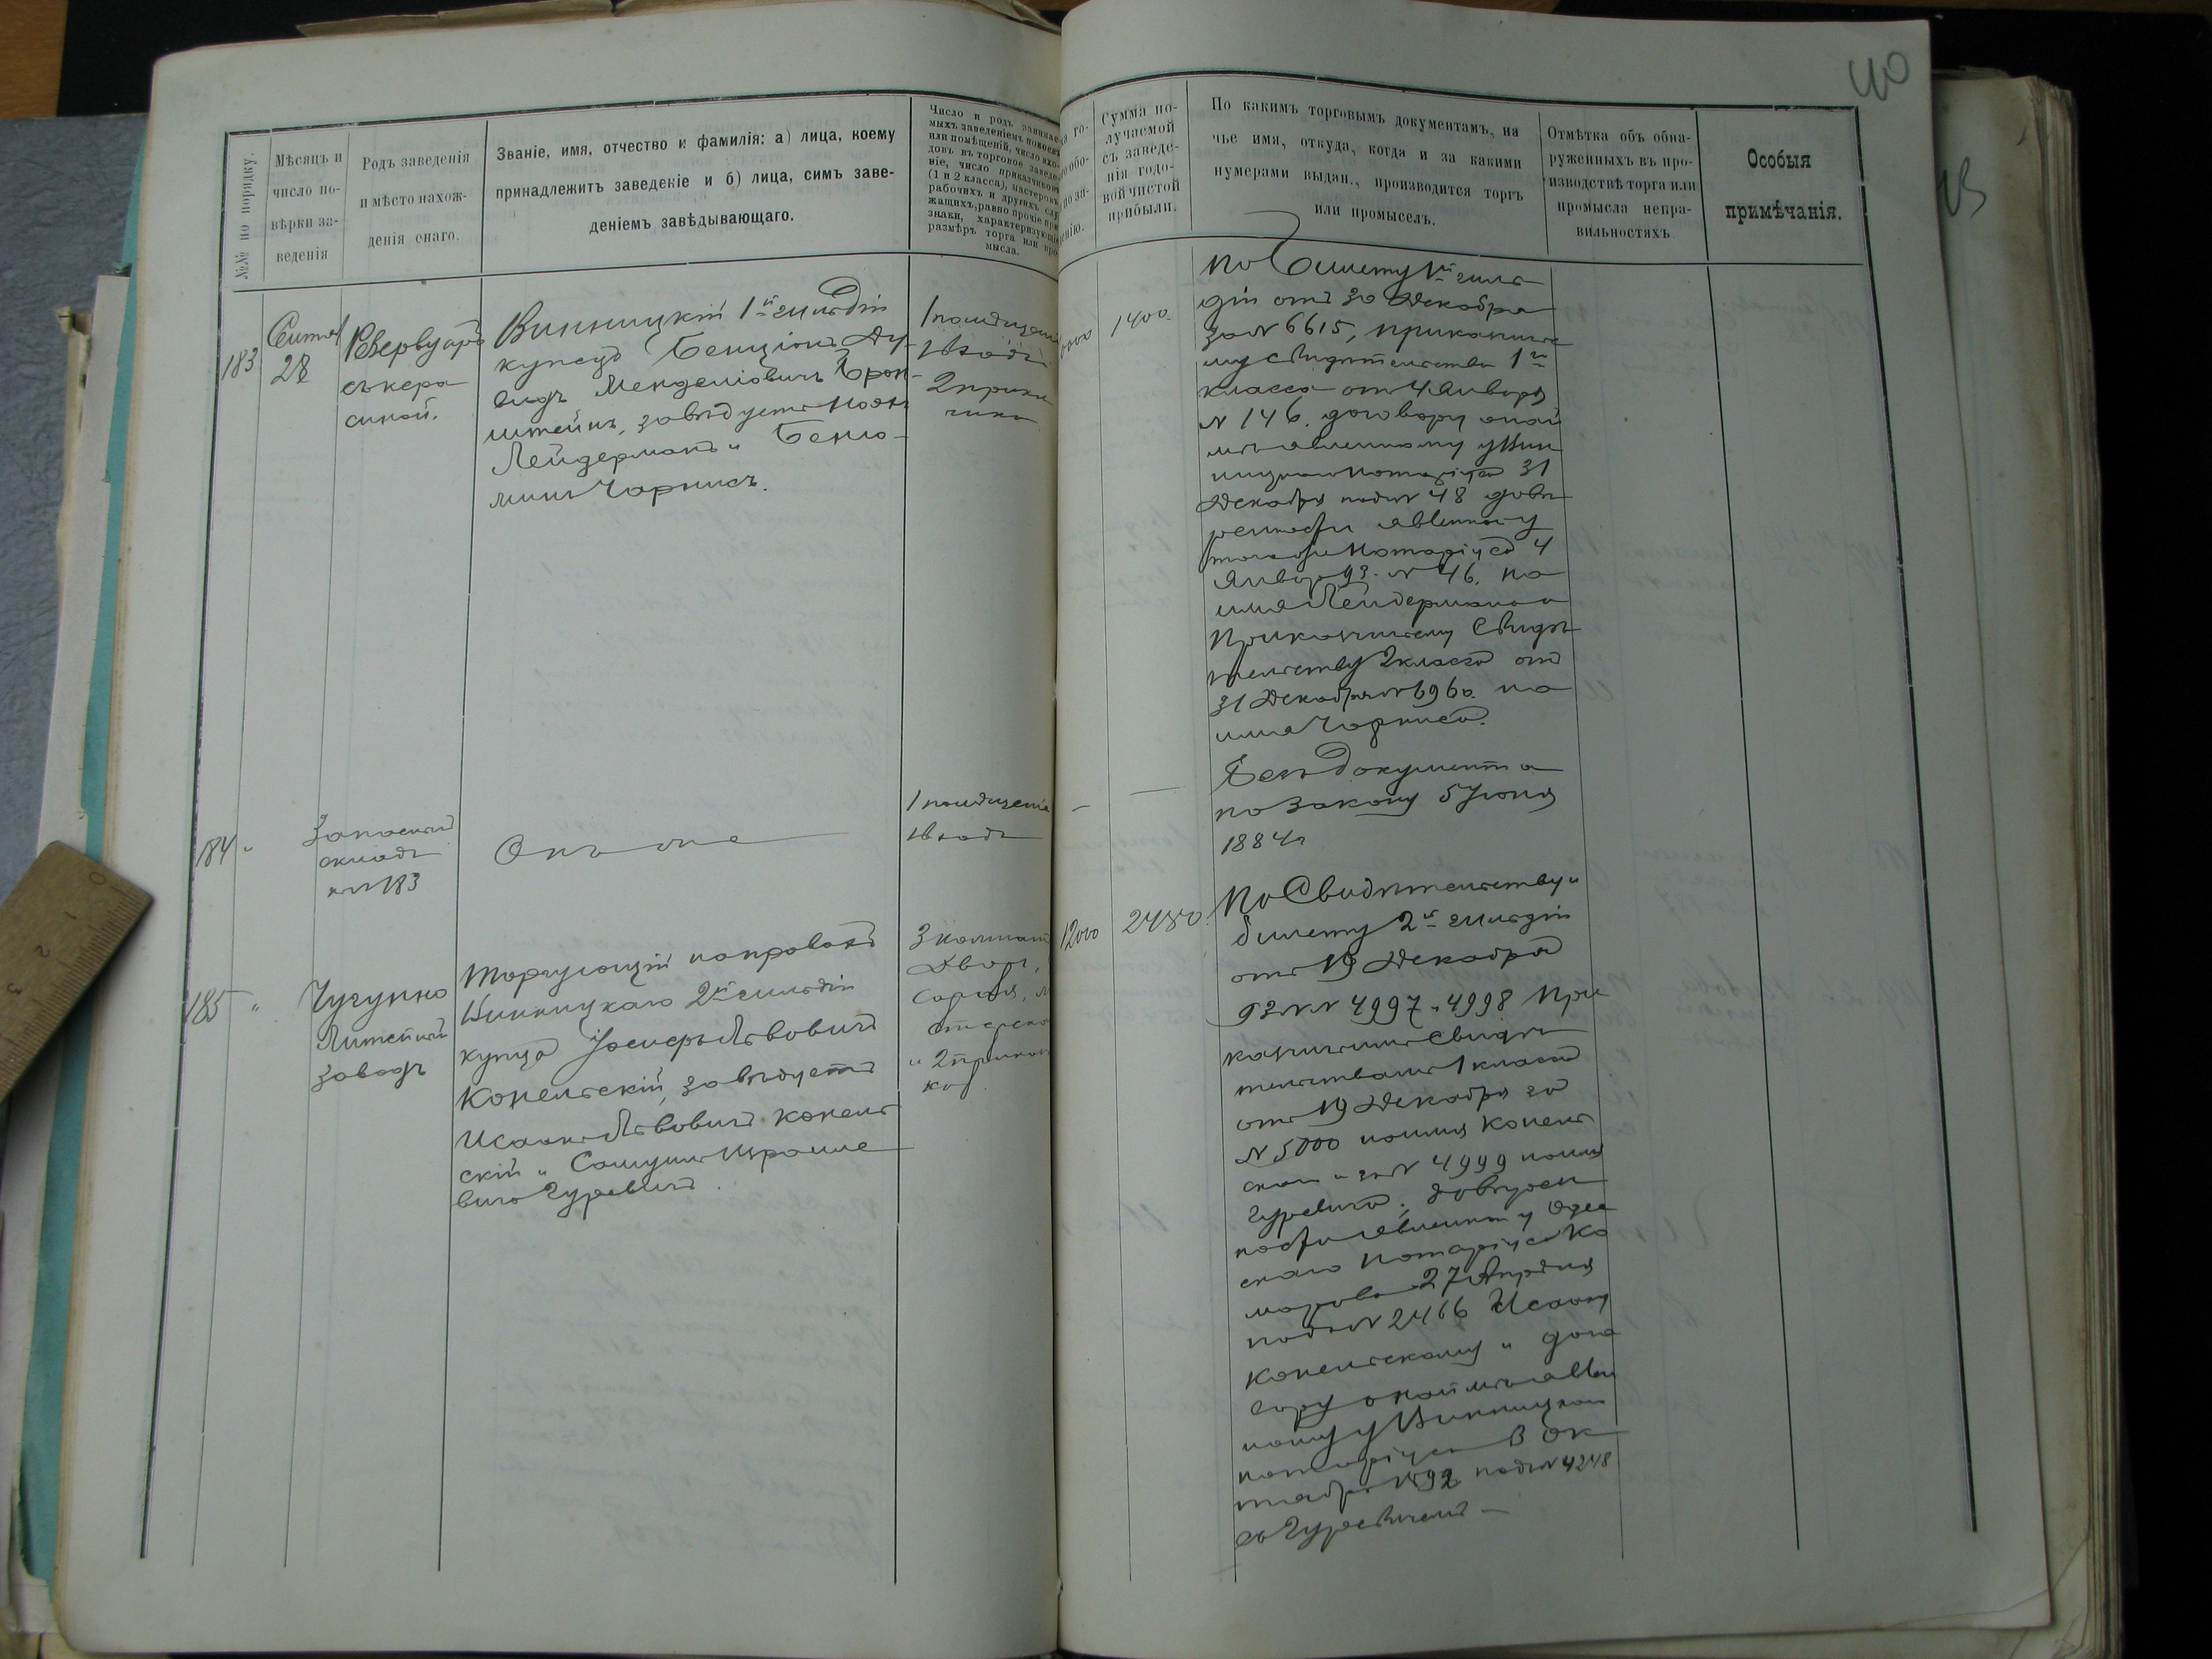 40
№№ по порядку.
Мѣсяцъ и число повѣрки заведенія
Родъ заведенія и мѣсто нахожденія онаго.
Званіе, имя, отчество и фамилія: а) лица, коему
принадлежитъ заведеніе и б) лица, симъ заве-
деніемъ завѣдывающаго.
Число и родъ занимае-
мыхъ заведеніемъ
или помѣщеній, число вхо-
довъ въ торговое заведе-
ніе, число приказчиковъ
(1 и 2 класса), мастеровъ,
рабочихъ и другихъ слу-
жащихъ, равно прочіе при-
знаки, характеризующіе
размѣръ торга или про-
мысла.
Сумма по-
лучаемой
съ заведе-
нія годо-
вой чистой
прибыли.
По какимъ торговымъ документамъ, на
чье имя, откуда, когда и за какими
нумерами выдан., производится торгъ
или промыселъ.
Отмѣтка объ обна-
руженныхъ въ про-
изводствѣ торга или
промысла непра-
вильностяхъ
Особыя
примѣчанія.
183
28
Резервуаръ
съ керо
синой.
Винницкій 1й гильдіи
купецъ Бенціонъ Ду-
видъ Менделіовичъ Брон-
штейнъ, завѣдуетъ
Лейдерманъ и Беніо-
минъ Чарнисъ.
1 помѣщеніе
1 входъ
2 прика
чика
1400
По билету 1й гиль
діи отъ 30 Декабря
за N 6615, приказчичье
му свидѣтельству 1го
класса отъ 4 Января
N 146. договору о най
мѣ явленному у Вин
ницкаго Нотаріуса 31
Декабря подъ N 48 довѣ
ренности явленной у
того же Нотаріуса 4
Января 93. N 46. на
имя Лейдермана и
Приказчичьему Свидѣ
тельству 2 класса отъ
31 Декабря N 6960. на
имя Чарниса.
184 "
Запасный
складъ
къ N 183
Онъ же
1 помѣщеніе
1 входъ
—
—
Безъ документа
по Закону 5 Іюня
1884 г
185 "
Чугунно
Литейный
заводъ
Торгующій по правамъ
Винницкаго 2й гильдіи
купца Іосифъ Львовичъ
Конельскій, завѣдуетъ
Исаакъ Львовичъ Конель
скій и Самуилъ Израиле
вичъ Гуревичъ.
3 комнаты
Дворъ,
Сарай,
и 2 приказ
ков.
12000
2480
По Свидѣтельству и
билету 2й гильдіи
отъ 19 Декабря
93 N N 4997 и 4998 При
казчичьимъ Свидѣ
тельствамъ 1 класса
отъ 19 Декабря за
N 5000 на имя Конель
скаго и за N 4999 на имя
Гуревича, довѣрен
ности явленной у Одес
скаго Нотаріуса Ко
марова 27 Апрѣля
подъ N 2466 Исааку
Конельскому и дого
вору о наймѣ явлен
ному у Винницкаго
нотаріуса 3 Ок
тября 1892 подъ N 4248
съ Гуревичемъ —